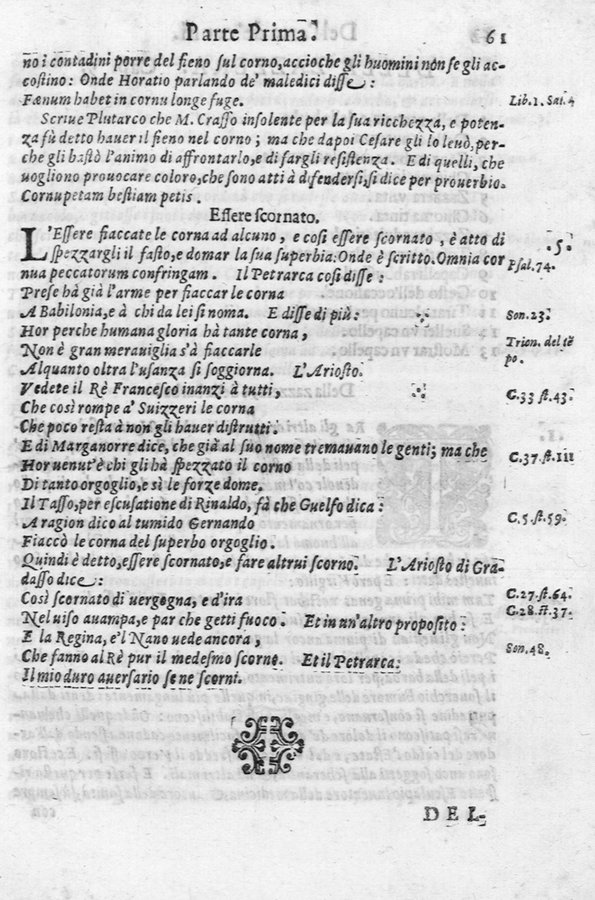 Parte Prima. 61
no i contadini porre del fieno sul corno, accioche gli huomini non se gli ac-
costino: Onde Horatio parlando de' maledici disse:
Fœnum habet in cornu longe fuge. Lib. 1. Sat. 4
Scriue Plutarco che M. Crasso insolente per la sua ricchezza, e poten-
za fù detto hauer il fieno nel corno; ma che dapoi Cesare gli lo leuò, per-
che gli bastò l'animo di affrontarlo, e di fargli resistenza. E di quelli, che
uogliono prouocare coloro, che sono atti à difendersi, si dice per prouerbio.
Cornupetam bestiam petis.
Essere scornato.
L'Essere fiaccate le corna ad alcuno, e cosi essere scornato, è atto di .5.
spezzargli il fasto, e domar la sua superbia: Onde è scritto. Omnia cor
nua peccatorum confringam. Il Petrarca cosi disse: Psal. 74.
Prese hà già l'arme per fiaccar le corna
A Babilonia, e à chi da lei si noma. E disse di più: Son. 23.
Hor perche humana gloria hà tante corna, Trion. del tẽ
Non è gran merauiglia s'à fiaccarle po.
Alquanto oltra l'usanza si soggiorna. L'Ariosto.
Vedete il Rè Francesco inanzi à tutti, C. 33 st. 43.
Che così rompe a' Suizzeri le corna
Che poco resta à non gli hauer distrutti.
E di Marganorre dice, che già al suo nome tremauano le genti; ma che
Hor uenut'è chi gli hà spezzato il corno C. 37. st. 111
Di tanto orgoglio, e sì le forze dome.
Il Tasso, per escusatione di Rinaldo, fà che Guelfo dica:
A ragion dico al tumido Gernando C. 5. st. 59.
Fiaccò le corna del superbo orgoglio.
Quindi è detto, essere scornato, e fare altrui scorno. L'Ariosto di Gra-
dasso dice:
Così scornato di uergogna, e d'ira C. 27. st. 64.
Nel uiso auampa, e par che getti fuoco. Et in un'altro proposito: C. 28. st. 37.
E la Regina, e'l Nano uede ancora,
Che fanno al Rè pur il medesmo scorno. Et il Petrarca: Son. 48.
Il mio duro auersario se ne scorni.
DEL-